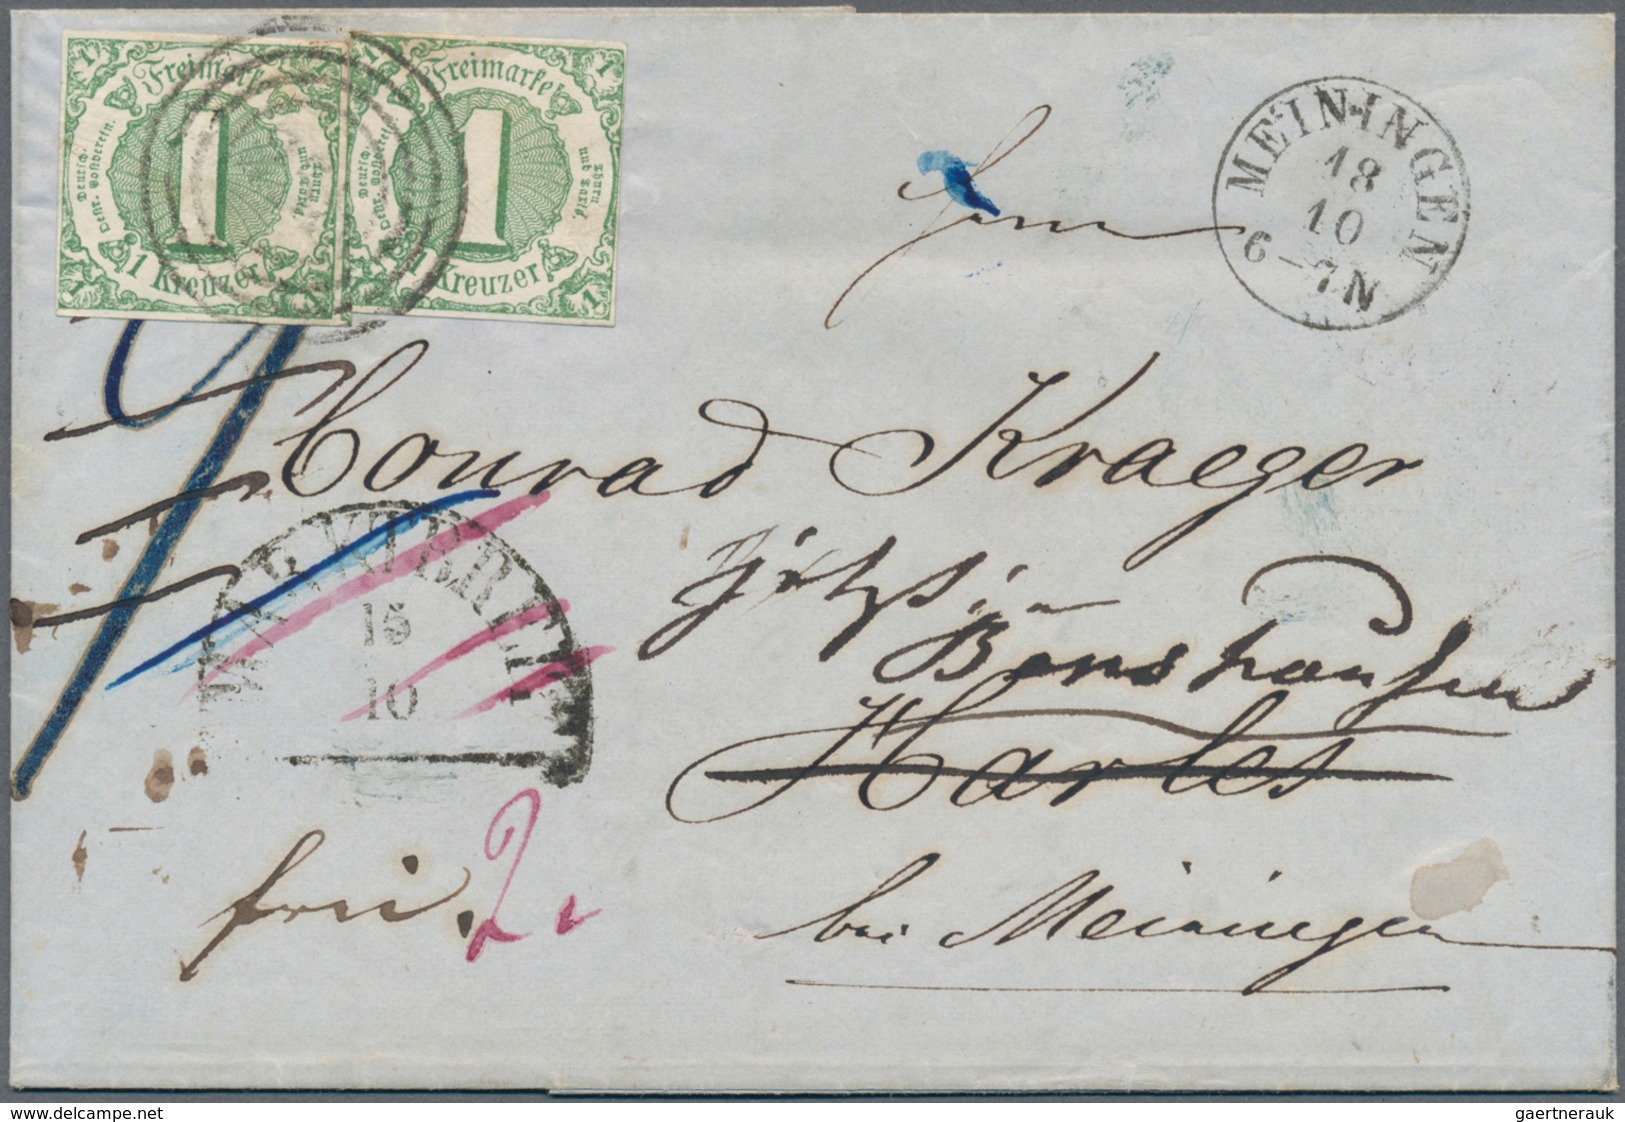 1 Freimarke 1
Deutsch-Oestr. Postverein.
Thurn und Taxis.
1
1 Kreuzer
1 1
1 Freimarke 1
Deutsch-Oestr. Postverein.
Thurn und Taxis.
1
1 Kreuzer
1
MEININGEN
18
10
6-7N
Herrn
Conrad Kraeger
Benshausen
Harles
bei Meiningen
15
10
frei.
2
gaertnerauk
www.delcampe.net